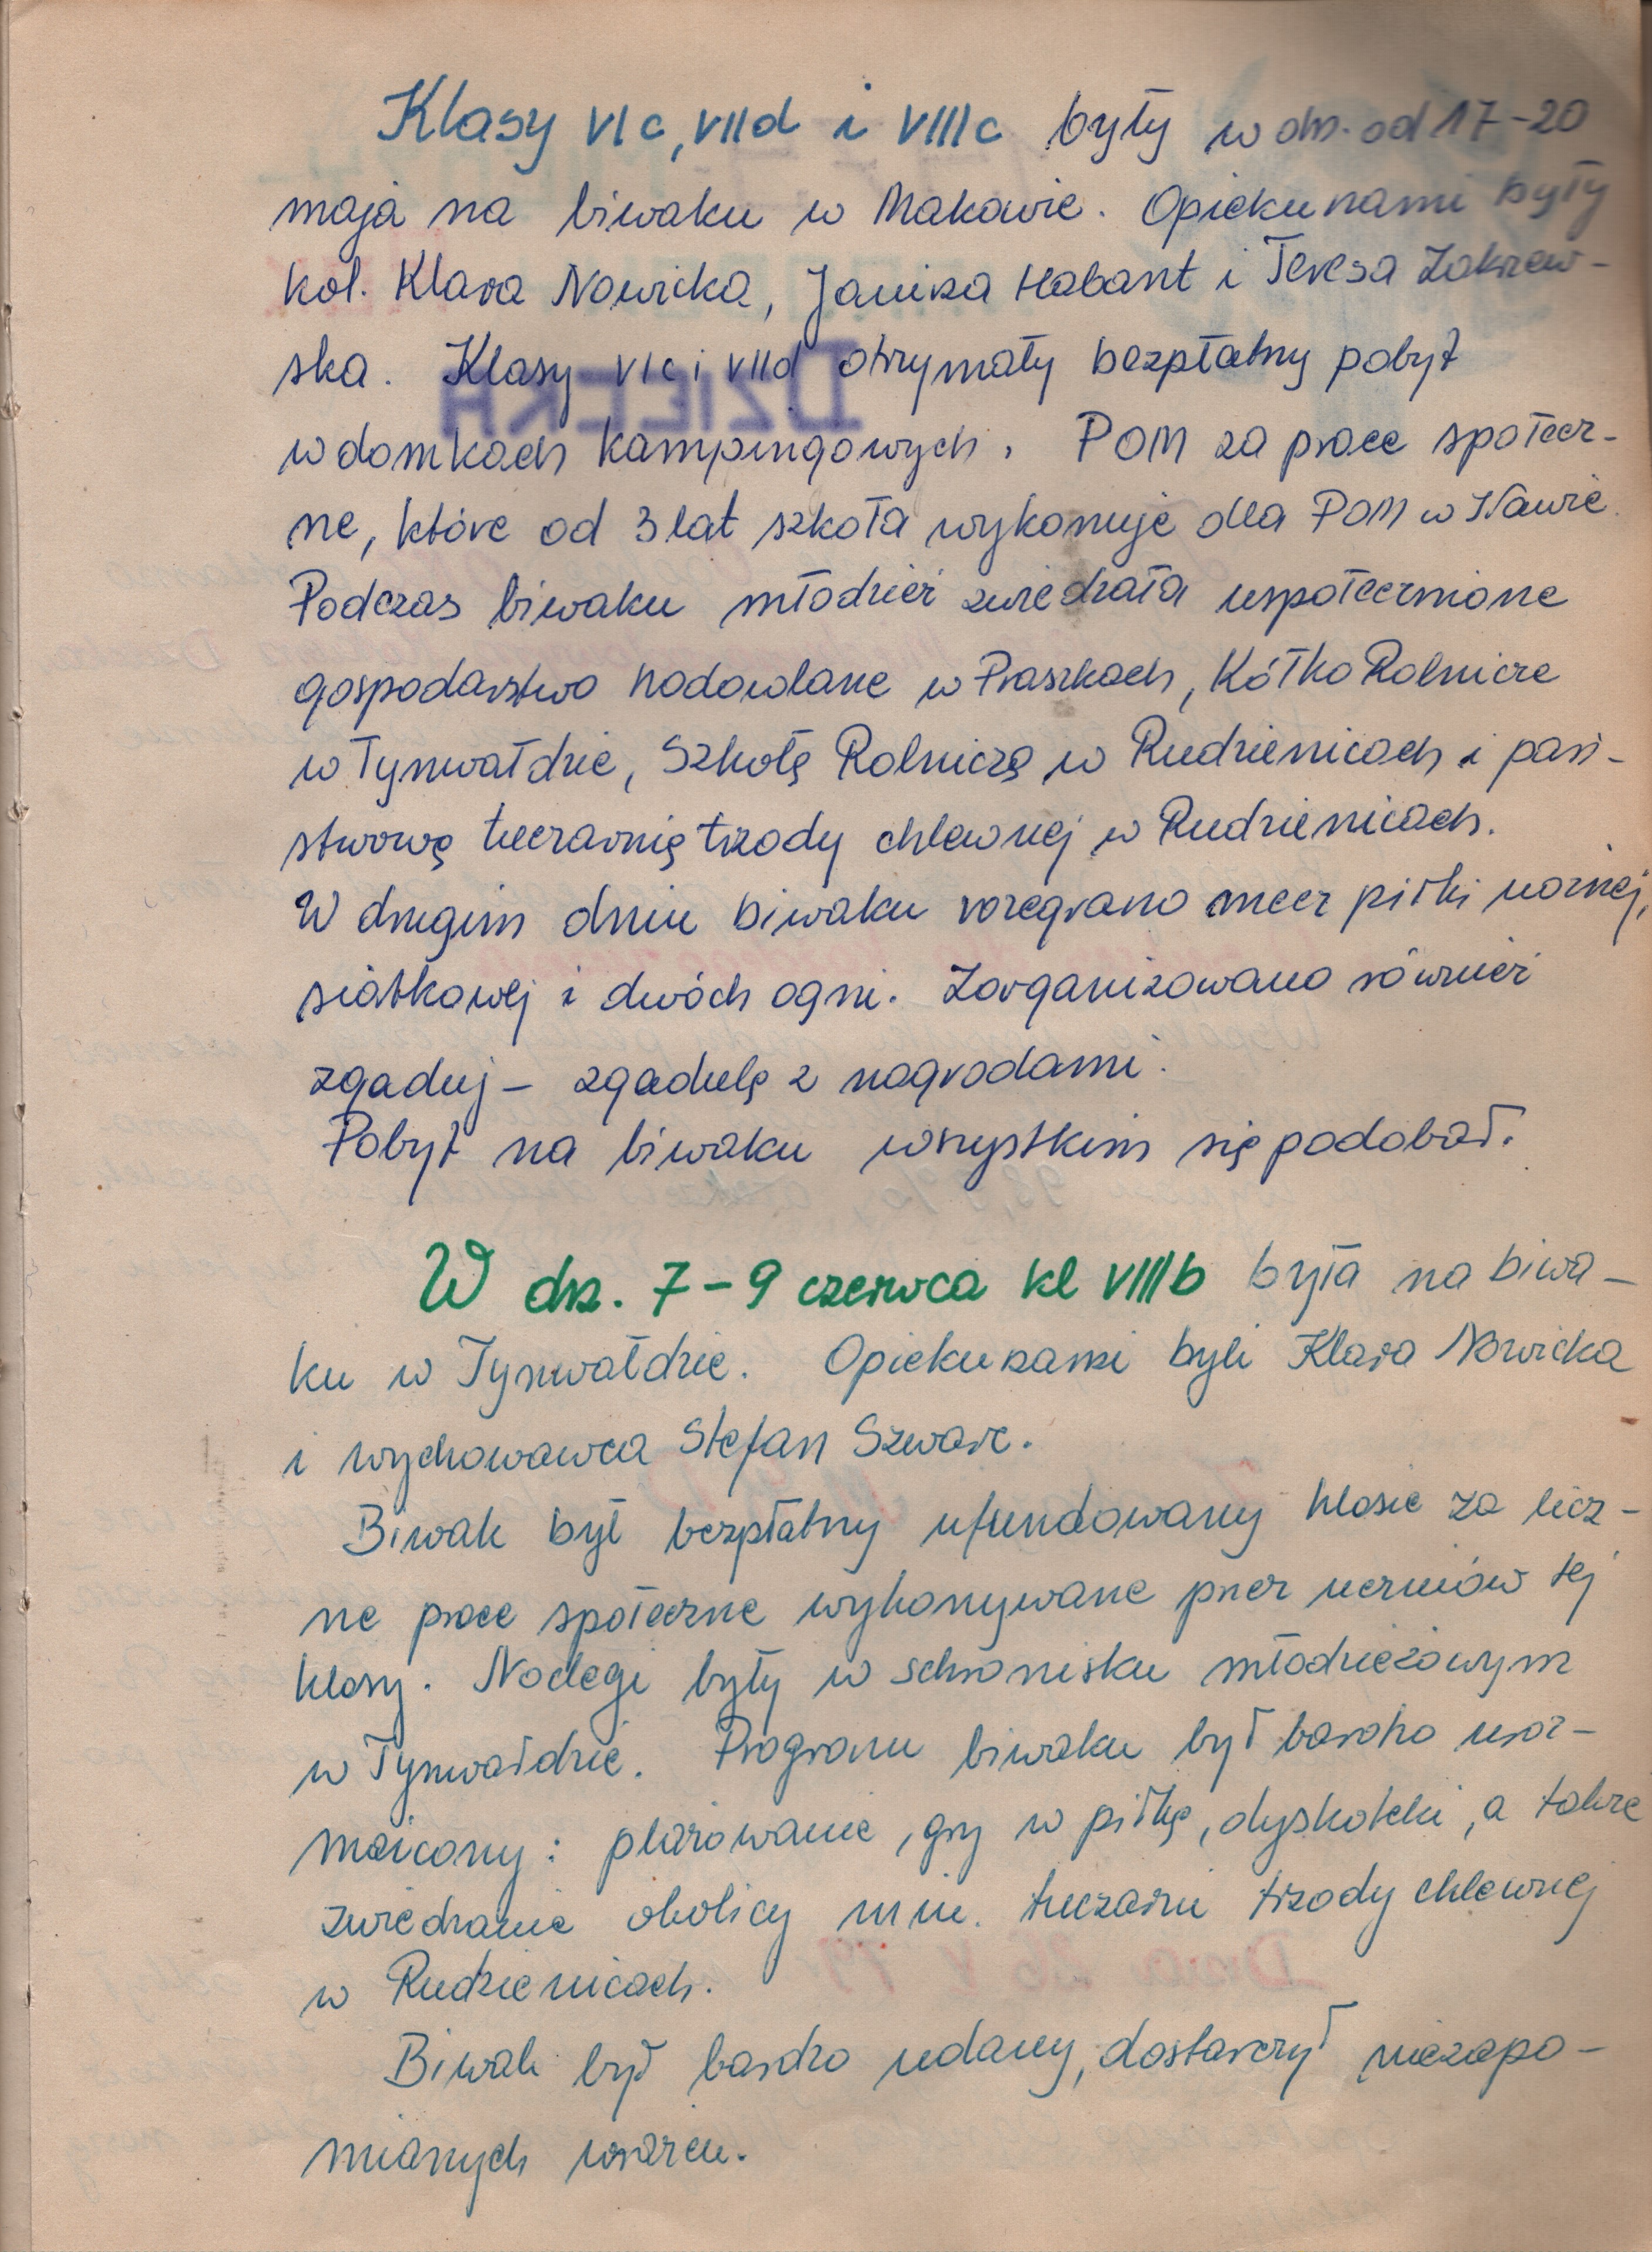 Klasy VIc, VIId i VIIIc były w dn. od 17-20
maja na biwaku w Makowie. Opiekunami były
kol. Klara Nowicka, Janina Habant i Teresa Zakrzew-
ska. Klasy VIc i VIId otrzymały bezpłatny pobyt
w domkach kampingowych. POM za prace społecz-
ne, które od 3 lat szkoła wykonuje dla POM w Iławie.
Podczas biwaku młodzież zwiedzała uspołecznione
gospodarstwo hodowlane w Praszkach, Kółko Rolnicze
w Tynwałdzie, Szkołę Rolniczą w Rudzienicach i pań-
stwową tuczarnię trzody chlewnej w Rudzienicach.
W drugim dniu biwaku rozegrano mecz piłki nożnej,
siatkowej i dwóch ogni. Zorganizowano również
zgaduj - zgadulę z nagrodami.
Pobyt na biwaku wszystkim się podobał.
W dn. 7-9 czerwca kl VIIIb była na biwa-
ku w Tynwałdzie. Opiekunami byli Klara Nowicka
i wychowawca Stefan Szwarc.
Biwak był bezpłatny ufundowany klasie za licz-
ne prace społeczne wykonywane przez uczniów tej
klasy. Noclegi były w schronisku młodzieżowym
w Tynwałdzie. Program biwaku był bardzo uroz-
maicony: plażowanie, gry w piłkę, dyskoteki, a także
zwiedzanie okolicy m.in. tuczarni trzody chlewnej
w Rudzienicach.
Biwak był bardzo udany, dostarczył niezapo-
mianych wrażeń.